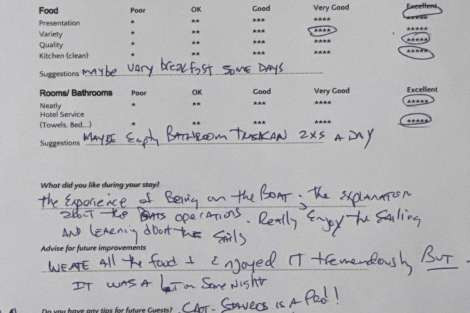 Food Poor OK Good Very Good Excellent
Presentation * ** *** **** *****
Variety * ** *** **** *****
Quality * ** *** **** *****
Kitchen (clean) * ** *** **** *****
Suggestions MAYBE vary breakfast SOME DAYS
Rooms/ Bathrooms Poor OK Good Very Good Excellent
Neatly * ** *** **** *****
Hotel Service
(Towels, Bed...) * ** *** **** *****
Suggestions MAYBE Empty BATHROOM TRASHCAN 2XS A DAY
What did you like during your stay?
the Experience of Being on the BOAT. the EXPLANATION
ABOUT the BOATS operations. Really Enjoy the Sailing
AND LEARNING ABOUT the Sails
Advise for future improvements
WE ATE All the food & Enjoyed IT tremendously BUT -
IT WAS A LOT on Some Night
Do you have any tips for future Guests? CAPT- STAVROS IS A